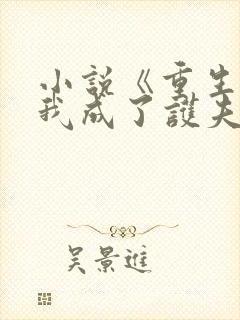 小説《重生
我成了護夫
吳景進